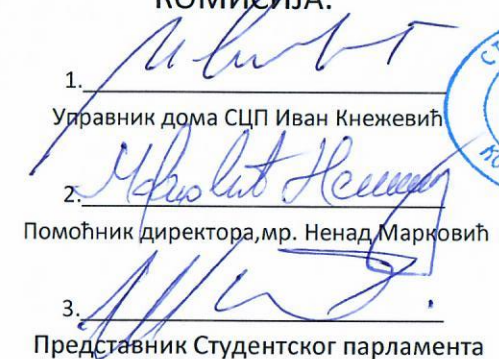 КОМИСИЈА:
1.
Управник дома СЦП Иван Кнежевић
2. Марковић Ненад
Помоћник директора,мр. Ненад Марковић
3.
Представник Студентског парламента